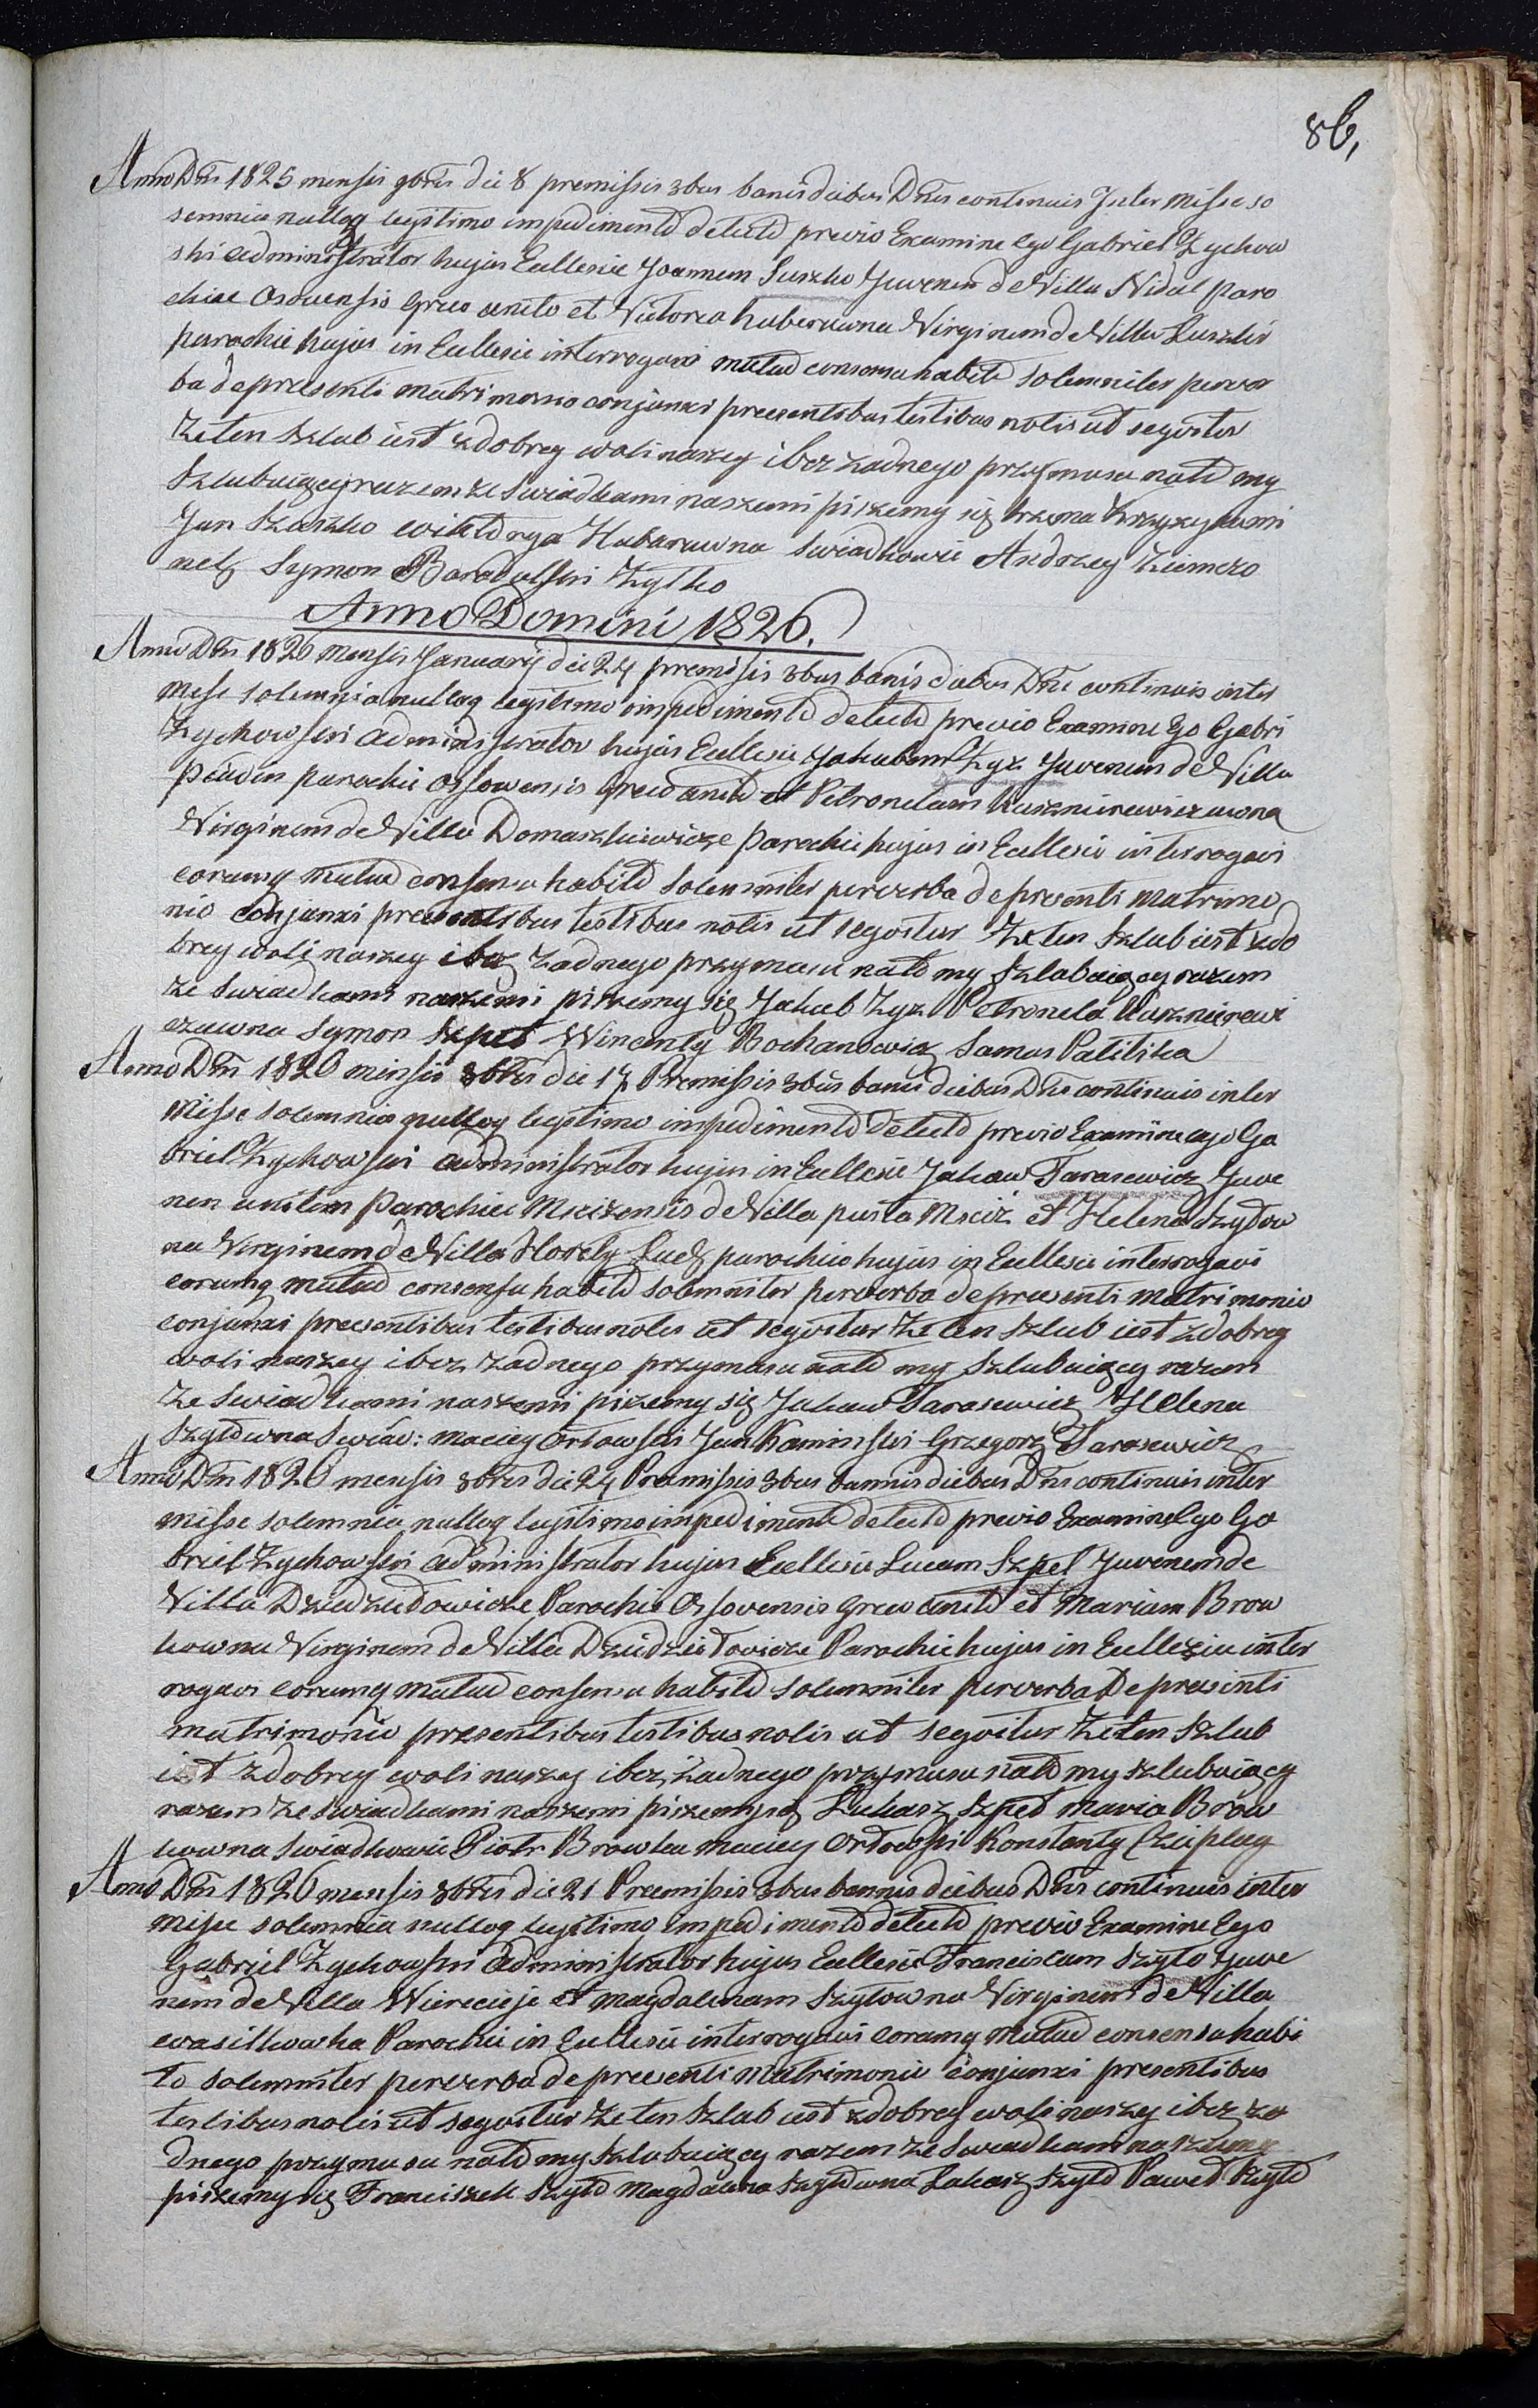 86,
Anno Dni 1825 mensis 9bris die 8 premissis 3bus banis diebus Dnis continuis Inter Misse so
lemnia nulloq legitimo impedimento detecto previo Examine Ego Gabriel Zychow
ski Administrator hujus Ecclesie Joannem Suszko Juvenem de Villa Widal paro
chiae Osovensis Greco unito et Victoria Huberuwna Virginem de Villa Luszlis
parochie hujus in Ecclesie interrogavi mutuo consensu habito solemniter perver
ba de presenti matrimonio conjunxi preesentibus testibus notis ut segvitur
Ze ten szlub iest z dobrey woli naszey i bez zadnego przymusu nato my
szlubuiącyi razem ze Swiadkami naszemi piszemy się trzema Krzyzykami
Jan Szuszko Wiktorya Hubaruwna Swiadkowie Andrzey
Symon Zylko
Anno Domini 1826.
Anno Dni 1826 Mensis Januarij die 24 premisis 3bus banis diebus Dni continuis inter
Mese solemnia nulloq legitimo impedimento detecto previo Examine Ego Gabri
Zychowski Administrator hujus Ecclesie Jakubem Zyz Juvenem de Villa
parochie Ossowensis Greco unito et Petronelam Kusznirewiczuwna
Virginem de Villa Domaszkiewicze Parochie hujus in Ecclesie interrogavi
corumq mutuo consensu habito solemniter perverba de presenti matrimo
nio conjunxi preesentibus testibus notis ut segvitur Ze ten szlub iest z do
brey woli naszey i bez zadnego przymusu nato my szlubuiącyi razem
ze Swiadkami naszemi piszemy się Jakub Zyz Petronela Kusznirewi
czuwna Symon Szpet Wincenty Bochanowicz Samus Palitika
Anno Dni 1826 mensis 8bris die 17 Premissis 3bus banis diebus Dnis continuis inter
Misse solemnia nulloq legitimo impedimento detecto previo Examine ego Ga
briel Zychowski Administrator hujus in Ecclesie Jakow Tarasewicz Juve
nem unitem Parochiei Mscizensis de Villa pusta Msciz et Helena Szyłow
na Virginem de Villa Horely Lud parochie hujus in Ecclesie interrogavi
corumq mutuo consensu habito solemniter perverba de preesenti matrimonio
conjunxi preesentibus testibus notis ut segvitur Ze ten szlub iest z dobrey
woli naszey i bez zadnego przymusu nato my szlubuiącyi razem
ze Swiadkami naszemi piszemy się Jakow Tarasewicz Helena
Szyłowna Swiad: maciey Orłowski Jan Kaminski Grzegorz Tarasewicz
Anno Dni 1826 mensis 8bris die 24 Premissis 3bus bannis diebus Dnis continuis inter
misse solemnia nulloq legitimo impedimento detecto previo Examine Ego Ga
briel Zychowski Administrator hujus Ecclesie Lucam Szpet Juvenem de
Villa Dziedziułowicze Parochie Ossovensis Greco unito et Mariam Brow
kowna Virginem de Villa Dziedziułowicze Parochie hujus in Ecclesia inter
rogavi corumq mutuo consensu habito solemniter perverba De presenti
matrimonio presentibus testibus notis ut segvitur Ze ten szlub
iest z dobrey woli naszey i bez zadnego przymusu nato my szlubuiącyi
razem ze swiadkami naszemi piszemysię Łukasz Szpet Maria Brow
kowna Swiadkowie Piotr Browka Maciey Orłowski Konstanty
Anno Dni 1826 mensis 8bris die 21 Preemissis 3bus bannis diebus Dnis continuis inter
misse solemnia nulloq legitimo impedimento detecto previo Examine Ego
Gabriel Zychowski Administrator hujus Ecclesie Franciscum Szyło Juve
nem de Villa Wierecieje et Magdalenam Szyłowna Virginem de Villa
Wasilkowka Parochie in Ecclesie interrogavi corumq mutuo consensu habi
to solemniter perverba de preesenti Matrimonio conjunxi presentibus
testibus notis ut segvitur Ze ten szlub iest z dobrey woli naszey i bez za
dnego przymusu nato my szlubuiący razem ze Swiadkami naszemy
piszemy się Franciszek Szyło Magdalena Szyłowna Łukasz Szyło Paweł Szyło